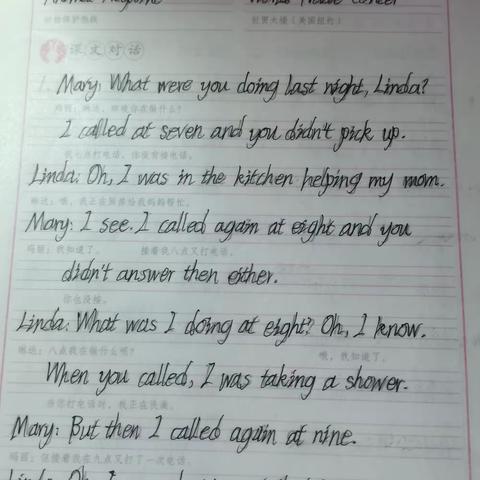 课文对话
1. Mary: What were you doing last night, Linda?
玛丽：琳达，昨晚你在做什么？
I called at seven and you didn't pick up.
我七点打电话，你没有接电话。
Linda: Oh, I was in the kitchen helping my mom.
琳达：哦，我正在厨房给我妈妈帮忙。
Mary: I see. I called again at eight and you
玛丽：我知道了。 接着我八点又打电话，
didn't answer then either.
你也没接。
Linda: What was I doing at eight? Oh, I know.
琳达：八点我在做什么呢？ 哦，我知道了。
When you called, I was taking a shower.
当你打电话时，我正在洗澡。
Mary: But then I called again at nine.
玛丽：但接着我在九点又打了一次电话。